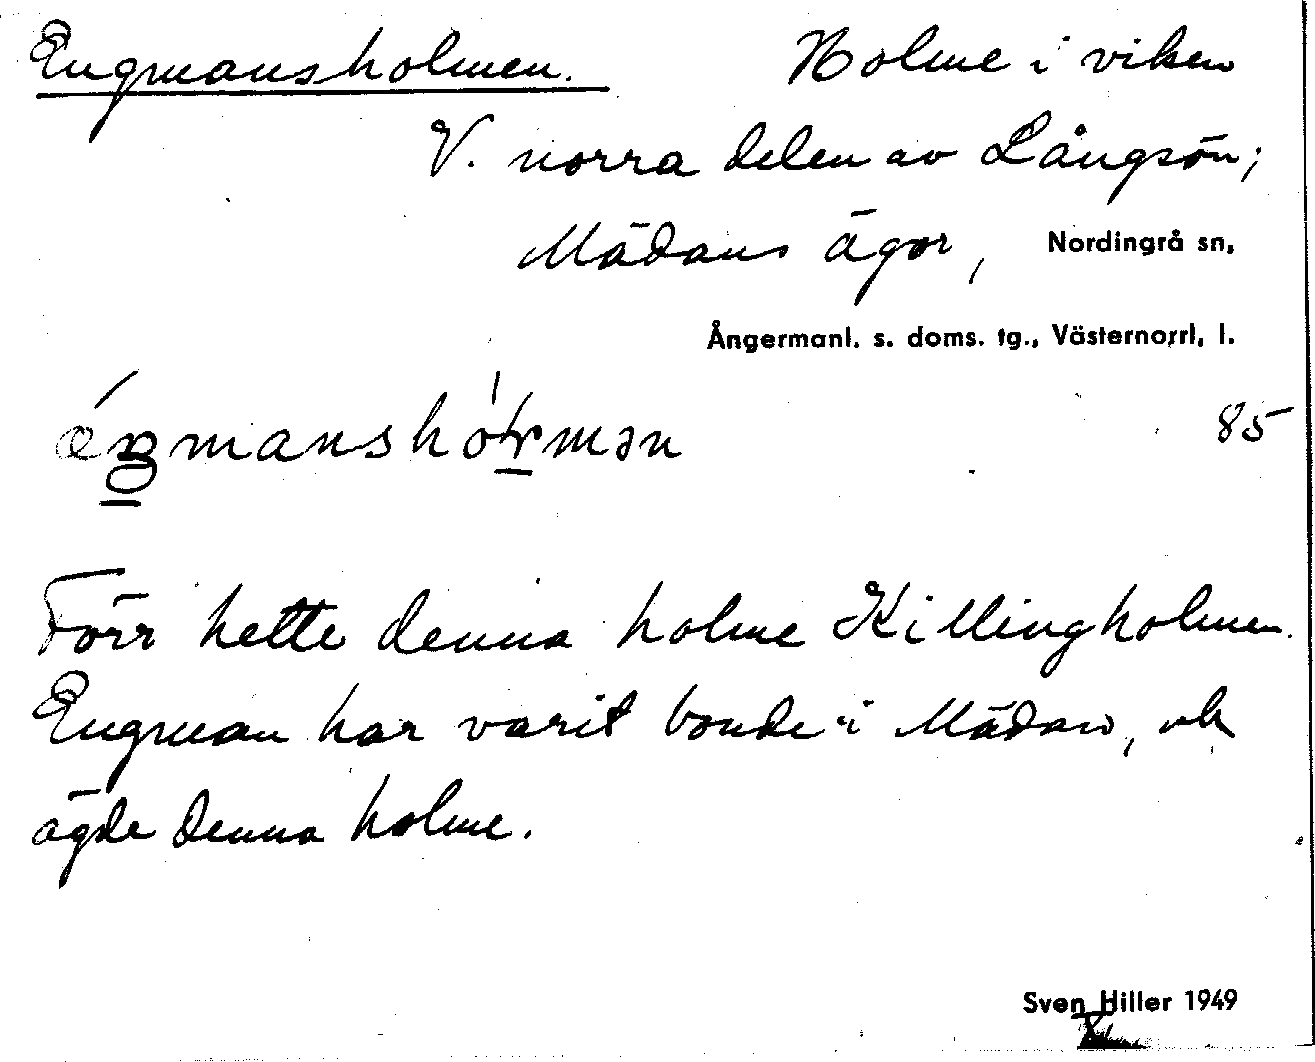 Engmansholmen. Holme i viken
V. norra delen av Långsön;
Mädans ägor, Nordingrå sn,
Ångermanl. s. doms. tg., Västernorrl. l.
85
Förr hette denna holme Killingholmen.
Engman har varit bonde i Mädan, ok
ägde denna holme.
Sven Hiller 1949